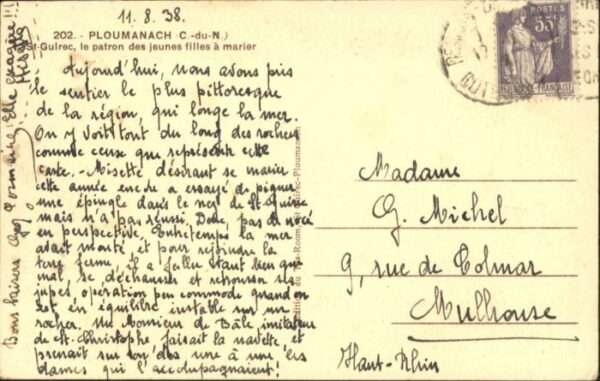 11.8.38.
202. - PLOUMANACH (C.-du-N.)
St-Guirec, le patron des jeunes filles à marier
Aujourd'hui, nous avons pris
le sentier le plus pittoresque
de la région, qui longe la mer.
On y voit tout du long des rochers
comme ceux que représente cette
carte. - Misette désirant se marier
cette année encore a essayé de piquer
une épingle dans le nez de St Guirec
mais n'a pas réussi, Donc, pas de noce
en perspective. Entretemps la mer
avait monté et pour rejoindre la
terre ferme, il a fallu tant bien que
mal, se déchausser et retrousser ses
jupes, opération peu commode quand on
est en équilibre instable sur un
rocher. Un Monsieur de Bâle, imitateur
de St-Christophe, faisait la navette et
prenait sur son dos une à une les
dames qui l'accompagnaient!
Bons baisers
Germaine
Elle exagère!!
Misette
POSTES
55c
Madame
G. Michel
9, rue de Colmar
Mulhouse
Haut-Rhin